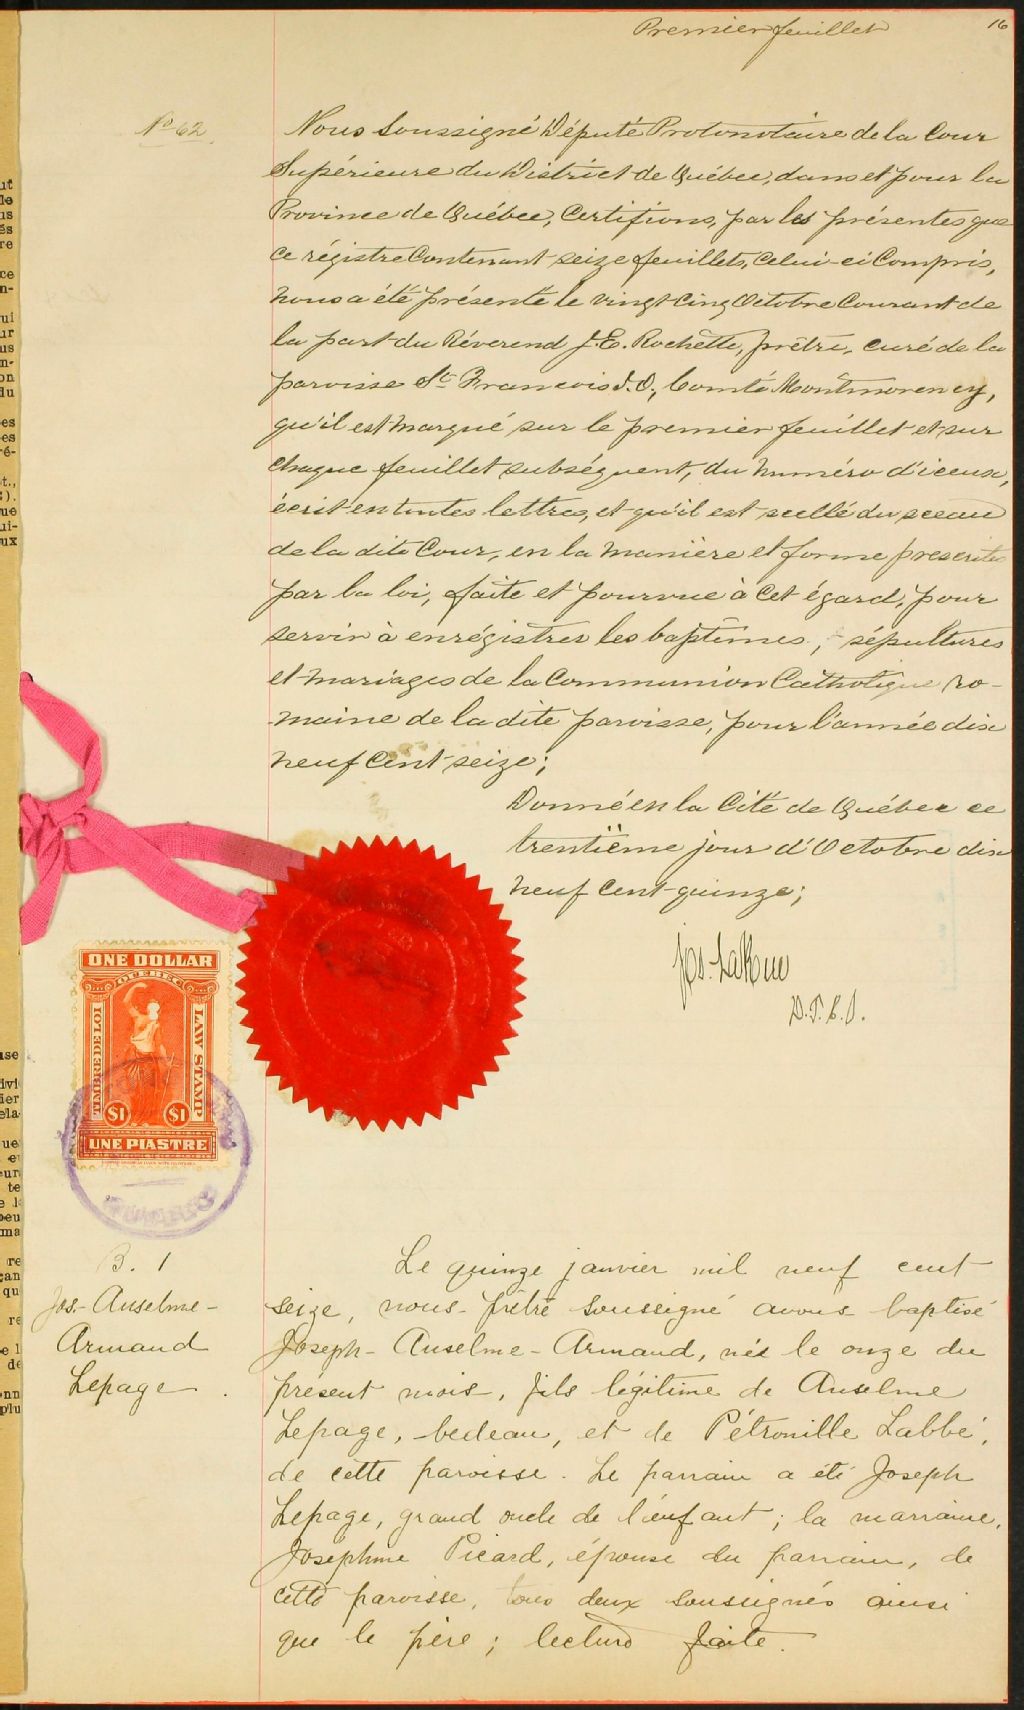 Premier feuillet
16
No 62
Nous Soussigné Député Protonotaire de la Cour
Supérieure du District de Québec, dans et pour la
Province de Québec, Certifions, par les présentes que
ce régistre Contenant seize feuillets, Celui-ci Compris,
nous a été présenté le vingt-cinq Octobre Courant de
la part du Réverend J. E. Rochette, prêtre, curé de la
paroisse St Francois I. O., Comté Montmorency,
qu'il est marqué sur le premier feuillet et sur
chaque feuillet subséquent, du numéro d'iceux,
écrit en toutes lettres, et qu'il est scellé du sceau
de la dite Cour, en la manière et forme prescrites
par la loi, faite et pourvue à cet égard, pour
servir à enrégistrer les baptêmes, sépultures
et mariages de la Communion Catholique ro-
-maine de la dite paroisse, pour l'année dix
neuf Cent seize;
Donné en la Cité de Québec ce
trentième jour d'Octobre dix
neuf Cent quinze;
Jos. LaRue
D.P.C.S.
ONE DOLLAR
QUEBEC
TIMBRE DE LOI
LAW STAMP
$1 $1
UNE PIASTRE
B. 1
Jos.-Anselme-
Armand
Lepage.
Le quinze janvier mil neuf cent
seize, nous-prêtre soussigné avons baptisé
Joseph-Anselme-Armand, né le onze du
présent mois, fils légitime de Anselme
Lepage, bedeau, et de Pétronille Labbé,
de cette paroisse. Le parrain a été Joseph
Lepage, grand oncle de l'enfant; la marraine,
Joséphine Picard, épouse du parrain, de
cette paroisse, tous deux soussignés ainsi
que le père; lecture faite.